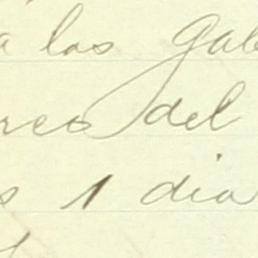 a los Gab
reo del
s 1 dia